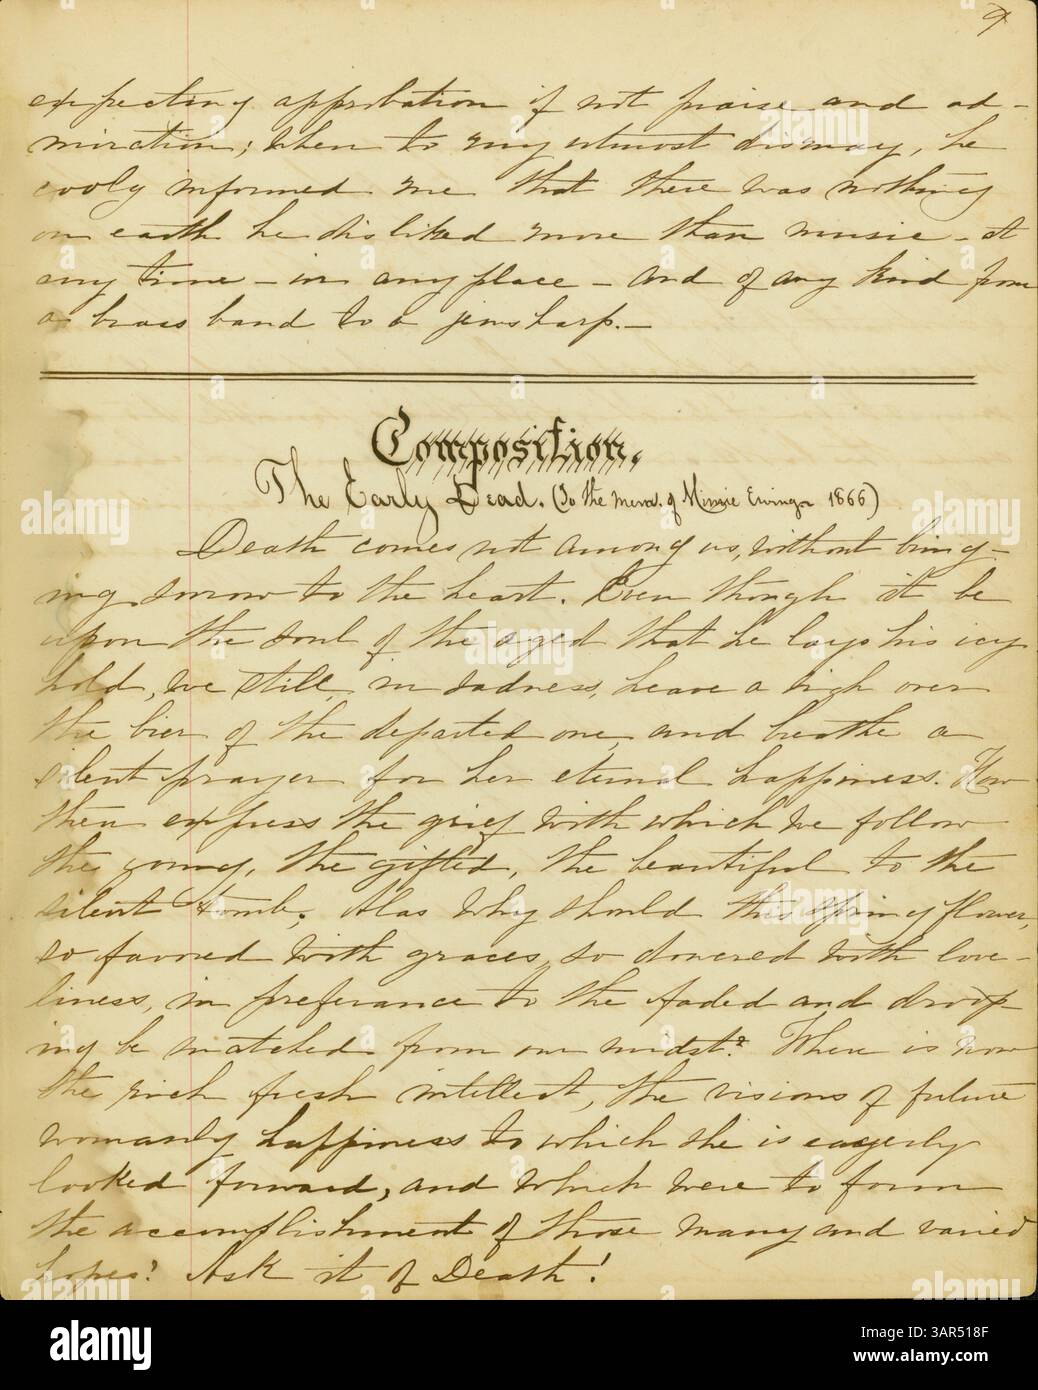 9
expecting approbation if not praise and ad-
miration; when to my utmost dismay, he
cooly informed me that there was nothing
on earth he disliked more than music - at
any time - in any place - and of any kind from
a brass band to a jewsharp. -
Composition.
The Early Dead. (To the mem. of Minnie Ewing 1866)
Death comes not among us, without bring-
ing sorrow to the heart. Even though it be
upon the soul of the aged that he lays his icy
hold, we still, in sadness, heave a sigh over
the bier of the departed one, and breathe a
silent prayer for her eternal happiness. How
then express the grief with which we follow
the young, the gifted, the beautiful to the
silent tomb. Alas why should this spring flower,
so favored with graces, so dowered with love-
liness, in preferance to the faded and droop-
ing be snatched from our midst? Where is now
the rich fresh intellect, the visions of future
womanly happiness to which she is eagerly
looked forward, and which were to form
the accomplishment of those many and varied
hopes? Ask it of Death!
alamy
alamy
Image ID: 3AR518F
www.alamy.com